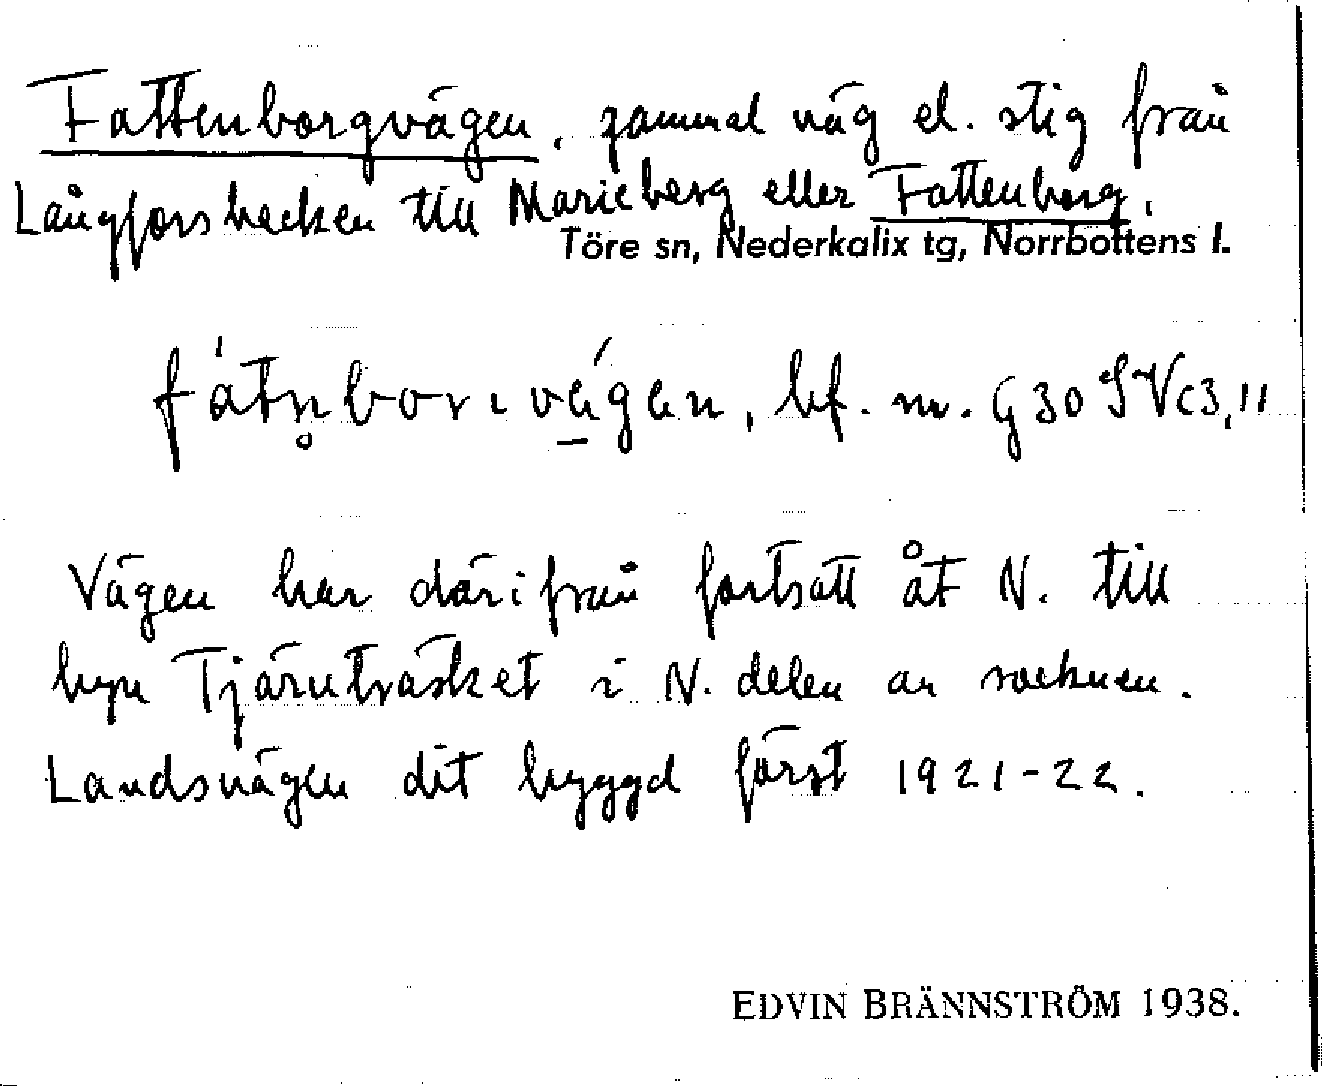 Fattenborgvägen, gammal väg el. stig från
Långforsbäcken till Marieberg eller Fattenborg,
Töre sn, Nederkalix tg, Norrbottens l.
fátn̥borɩvä́gen, bf. nv. G30 SVc3,11
Vägen har därifrån fortsatt åt N. till
byn Tjärnträsket i N. delen av socknen.
Landsvägen dit byggd först 1921-22.
EDVIN BRÄNNSTRÖM 1938.